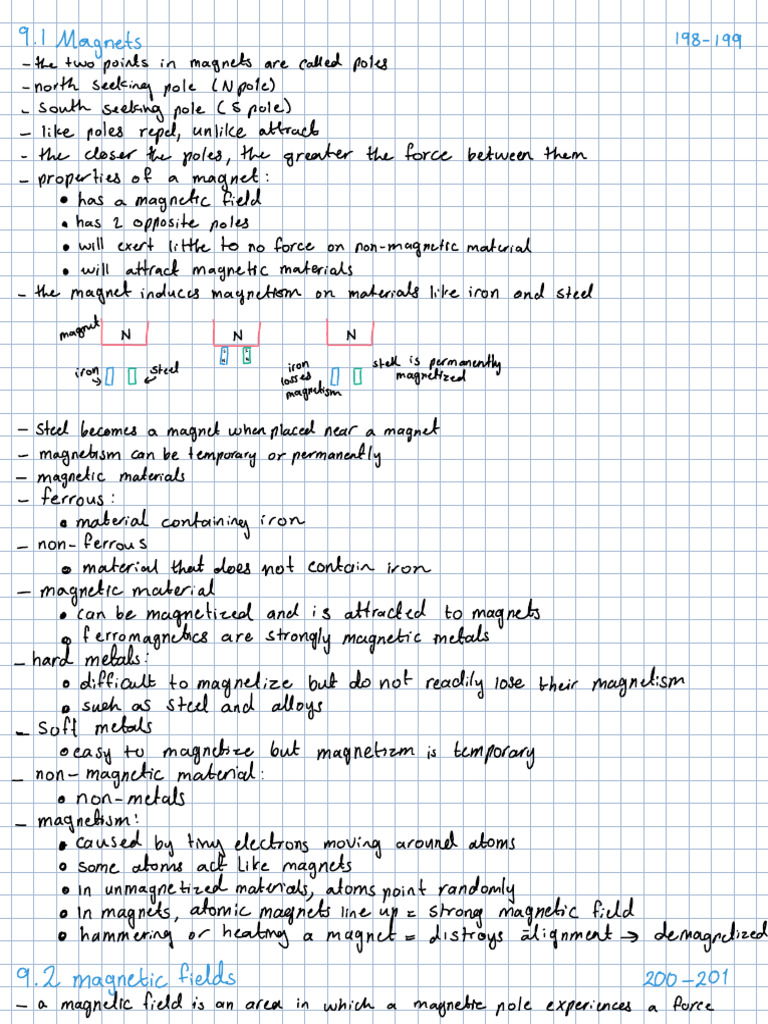 9.1 Magnets 198-199
- the two points in magnets are called poles
- north seeking pole (N pole)
- south seeking pole (S pole)
- like poles repel, unlike attract
- the closer the poles, the greater the force between them
- properties of a magnet:
• has a magnetic field
• has 2 opposite poles
• will exert little to no force on non-magnetic material
• will attract magnetic materials
- the magnet induces magnetism on materials like iron and steel
magnet N N N
iron steel iron losses magnetism stell is permanently magnetized
- Steel becomes a magnet when placed near a magnet
- magnetism can be temporary or permanently
- magnetic materials
- ferrous:
• material containing iron
- non-ferrous
• material that does not contain iron
- magnetic material
• can be magnetized and is attracted to magnets
• ferromagnetics are strongly magnetic metals
- hard metals:
• difficult to magnetize but do not readily lose their magnetism
• such as steel and alloys
- Soft metals
• easy to magnetize but magnetizm is temporary
- non-magnetic material:
• non-metals
- magnetism:
• caused by tiny electrons moving around atoms
• some atoms act like magnets
• in unmagnetized materials, atoms point randomly
• in magnets, atomic magnets line up = strong magnetic field
• hammering or heating a magnet = distroys alignment → demagnetized
9.2 magnetic fields 200-201
- a magnetic field is an area in which a magnetic pole experiences a force